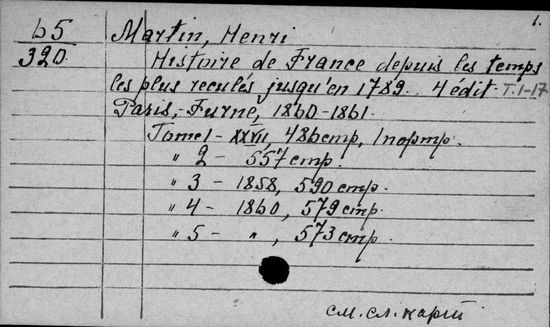 1.
65 Martin, Henri
320 Histoire de France depuis les temps
les plus reculés jusqu'en 1789. 4 édit. T.1-17
Paris, Furne, 1860-1861.
Tome 1 - XXVII, 486 стр., 1 портр.
" 2 - 557 стр.
" 3 - 1858, 590 стр.
" 4 - 1860, 579 стр.
" 5 - " , 573 стр.
см. сл. карт